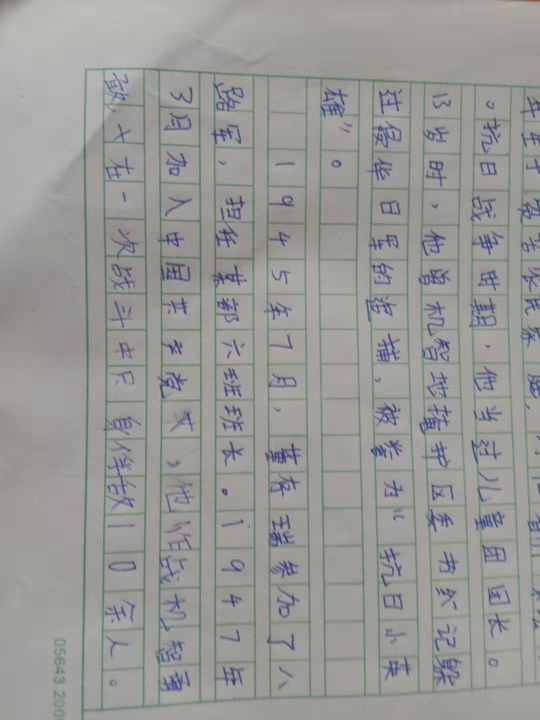 年生于贫苦农民家庭,
。抗日战争时期,他当过儿童团团长。
13岁时,他曾机智地掩护区委书记躲
过侵华日军的追捕,被誉为“抗日小英
雄”。
1945年7月,董存瑞参加了八
路军,担任某部六班班长。1947年
3月加入中国共产党,他作战机智勇
敢,十在一次战斗中只身俘敌10余人。
05643.200